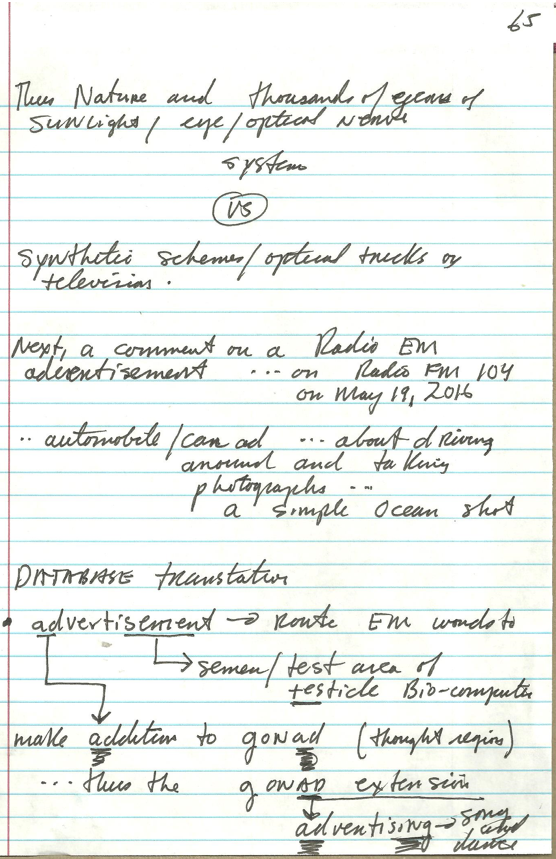 65
Thus Nature and thousands of years of
sunlight / eye / optical nerve
system
VS
Synthetic schemes / optical tricks of
television.
Next, a comment on a Radio EM
advertisement ... on Radio FM 104
on May 19, 2016
.. automobile / car ad ... about driving
around and taking
photographs ...
a simple Ocean shot
DATABASE translation
• advertisement → Route EM words to
semen / test area of
testicle Bio-computer
make addition to gonad (thought region)
... thus the gonAD extension
advertising → song and
dance